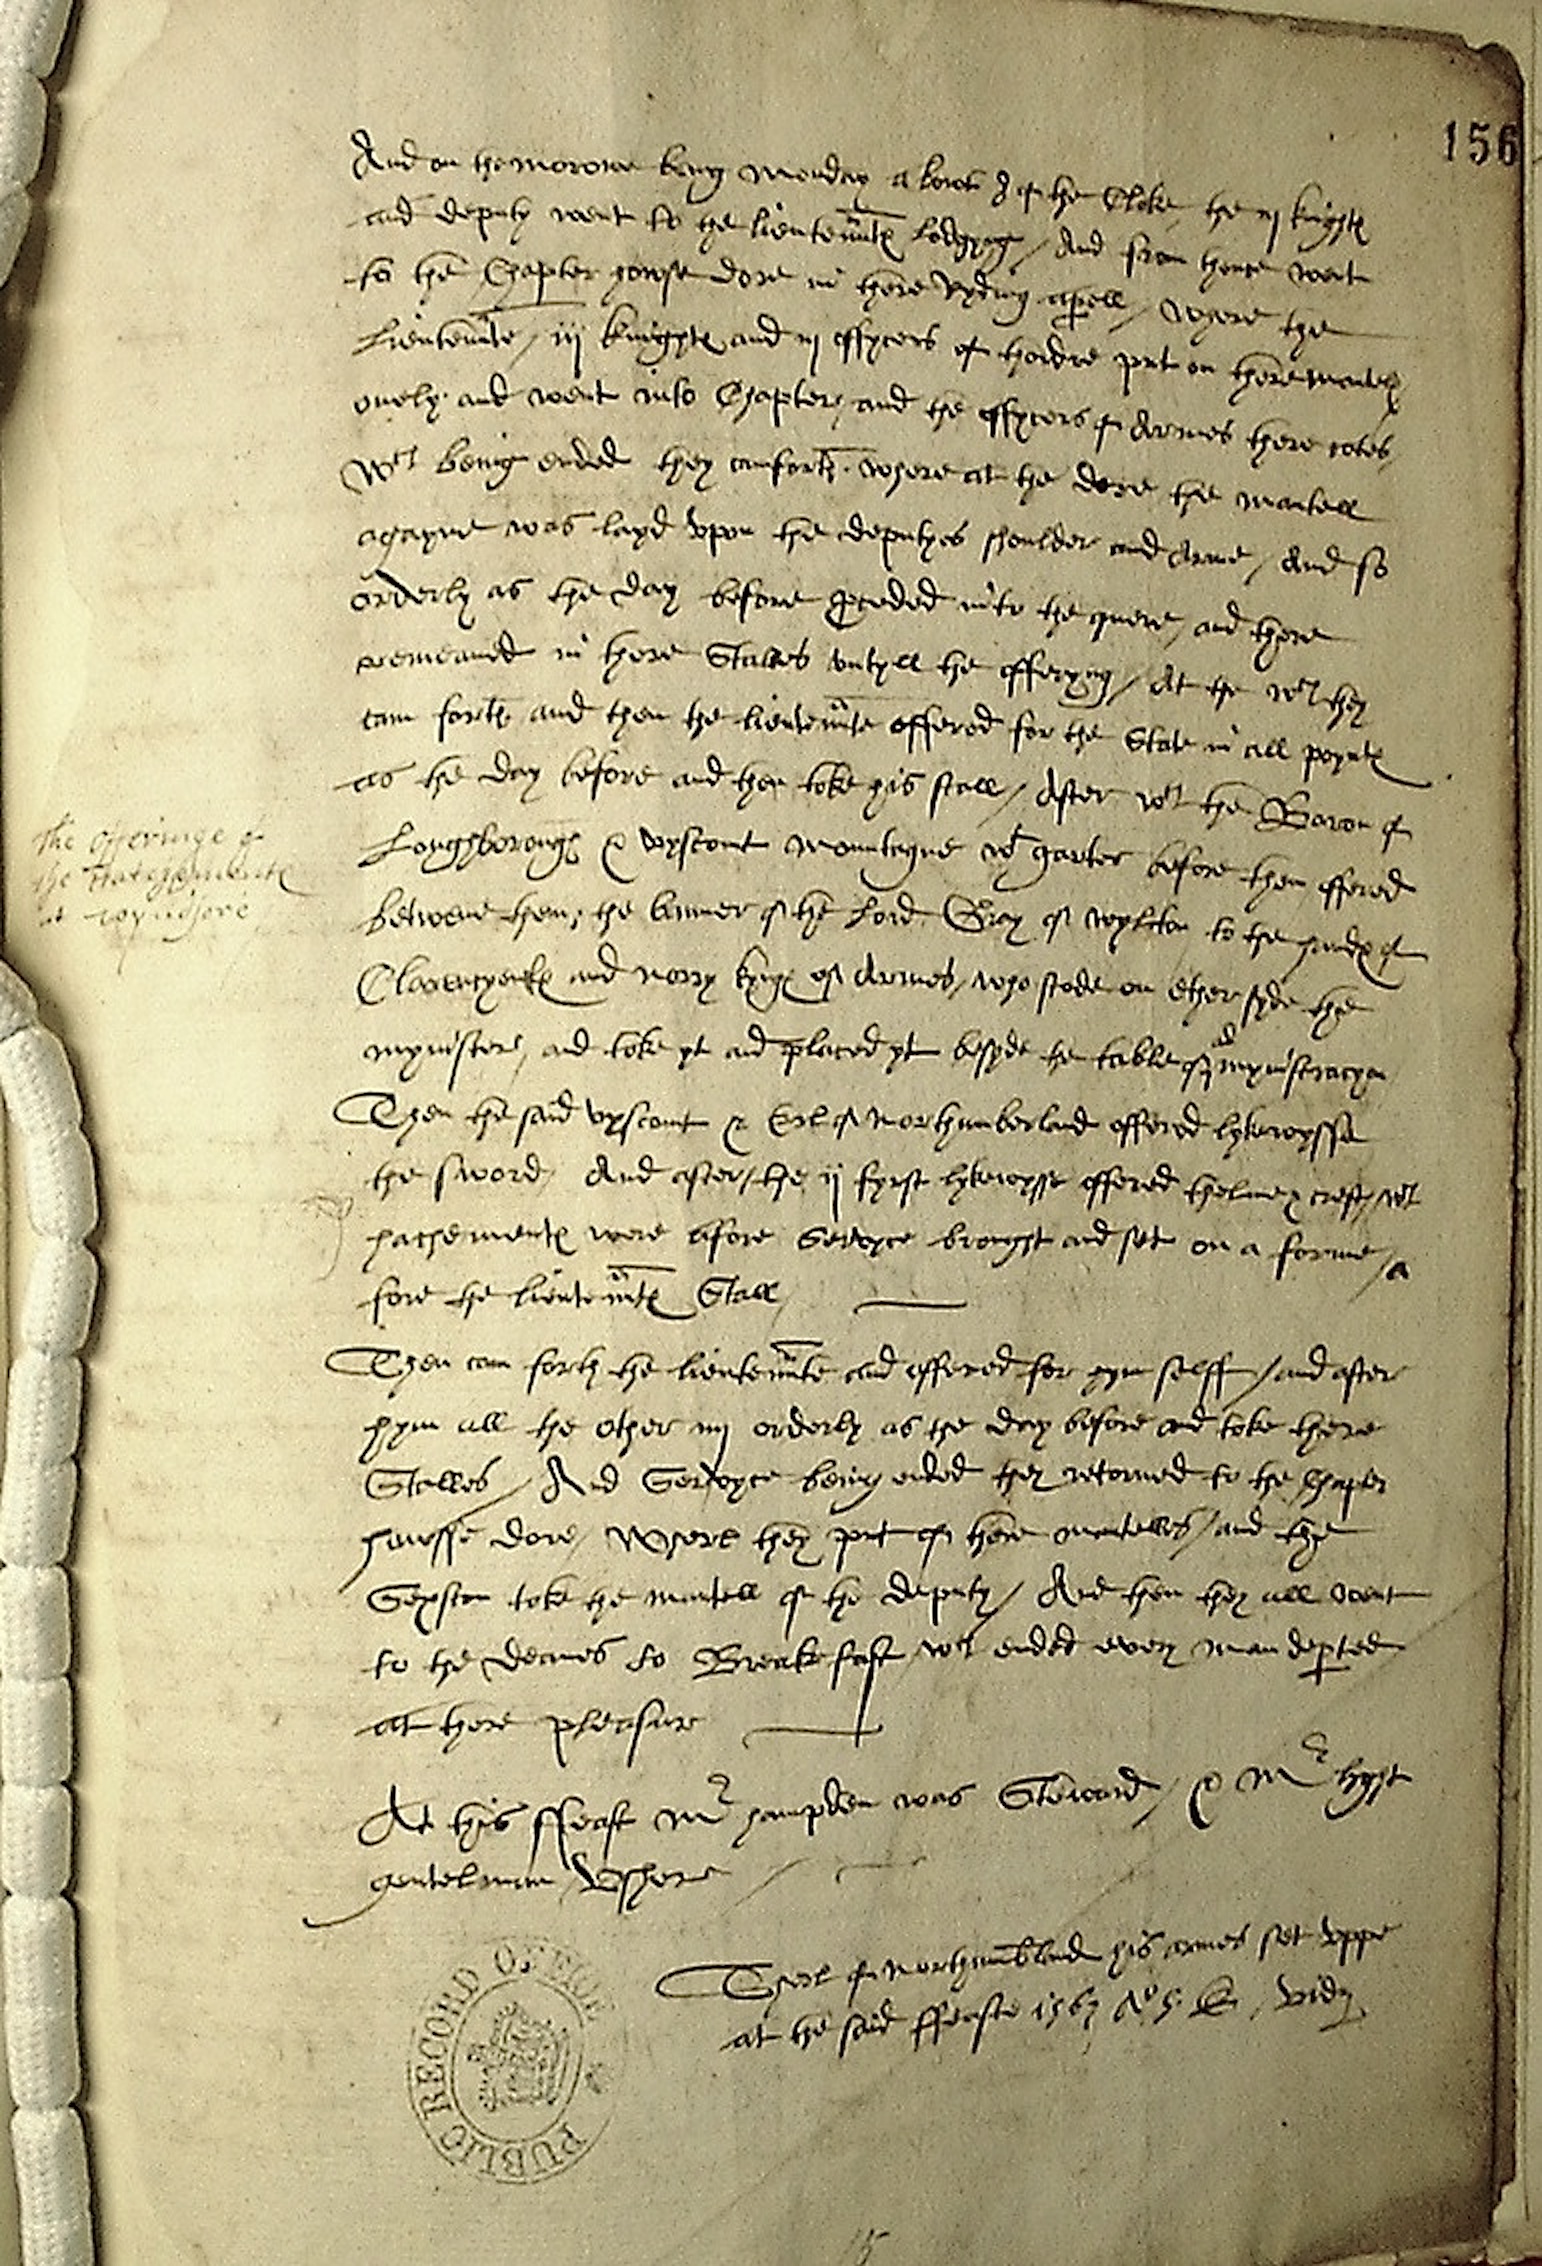 156
And on the morowe being monday a bowt 8 of the Cloke, the iij knightes
and deputy went to the lieutenantes Lodgyng / And from thence went
to the Chapter howse dore in there Ryding aparell / where the
Lieutenante / iij knightes and iij offycers of thordre put on there mantelles
onely. and went into Chapter, and the offycers of Armes there cotes,
wch being ended they cam forth. where at the dore the mantell
agayne was layd vpon the deputyes shoulder and Arme / And so
orderly as the day before proceded into the quere, and there
remeaned in there Stalles vntyll the offeryng / At the wch they
cam forth, and then the lieutenante offered for the State in all poyntes
as the day before and then toke his stall / After wch the Baron of
The offeringe of
the hatchementes
at wyndsore
Loughborough & vyscont mountague wt garter before them offered
betwene them, the banner of the Lord Gray of wylton to the handes of
Clarencyeulx and norry kynges of Armes, who stode on ether syde the
mynister, and toke yt and placed yt besyde the table of admynistracyon
Then the said vyscont & Erl of Northumberland offered lykewysse
the sword, And after, the ij fyrst lykewysse offered thelme & crest, wch
hachementes were afore Servyce brought and set on a forme / a
fore the lieutenantes Stall
Then cam forth the lieutenante and offered for hym selff / and after
hym all the other iiij orderly as the day before and toke there
Stalles / And Servyce being ended they retorned to the Chapter
howsse dore, where they put of there mantelles / and the
Sexston toke the mantell of the deputy / And then they all went
to the deanes to Breakefast, wch ended every man departed
at there pleasure
At this ffeast Mr hampden was Steward, & Mr hyst
gentelman Vsher
Therl of Northumberland his armes set vppe
at the said ffeaste 1563 Ao 5. E.
PUBLIC RECORD OFFICE